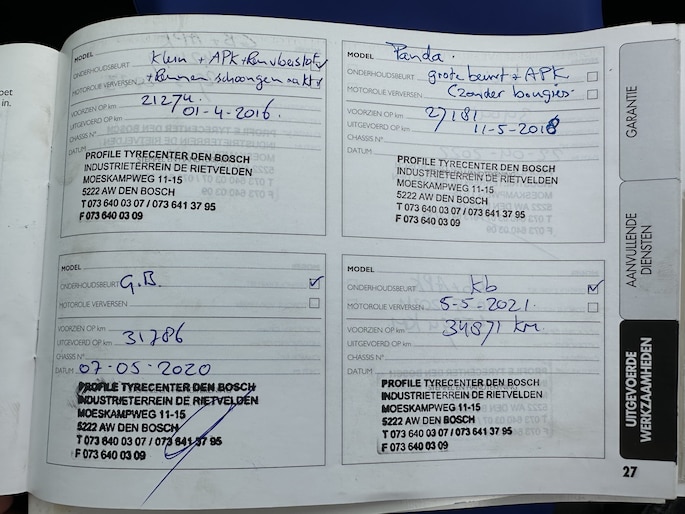 oet
in.
MODEL
Klein + APK + Remvloeistof
ONDERHOUDSBEURT
MOTOROLIE VERVERSEN + Remmen schoongemaakt
VOORZIEN OP km 21274.
UITGEVOERD OP km 01-4-2016.
CHASSIS N°
DATUM
PROFILE TYRECENTER DEN BOSCH
INDUSTRIETERREIN DE RIETVELDEN
MOESKAMPWEG 11-15
5222 AW DEN BOSCH
T 073 640 03 07 / 073 641 37 95
F 073 640 03 09
MODEL Panda.
ONDERHOUDSBEURT grote beurt + APK
MOTOROLIE VERVERSEN (zonder bougies.
VOORZIEN OP km 27181
UITGEVOERD OP km 11-5-2018
CHASSIS N°
DATUM
PROFILE TYRECENTER DEN BOSCH
INDUSTRIETERREIN DE RIETVELDEN
MOESKAMPWEG 11-15
5222 AW DEN BOSCH
T 073 640 03 07 / 073 641 37 95
F 073 640 03 09
MODEL
ONDERHOUDSBEURT G.B.
MOTOROLIE VERVERSEN
VOORZIEN OP km
UITGEVOERD OP km 31786
CHASSIS N°
DATUM 07-05-2020
PROFILE TYRECENTER DEN BOSCH
INDUSTRIETERREIN DE RIETVELDEN
MOESKAMPWEG 11-15
5222 AW DEN BOSCH
T 073 640 03 07 / 073 641 37 95
F 073 640 03 09
MODEL
ONDERHOUDSBEURT kb
MOTOROLIE VERVERSEN 5-5-2021.
VOORZIEN OP km 34871 km.
UITGEVOERD OP km
CHASSIS N°
DATUM
PROFILE TYRECENTER DEN BOSCH
INDUSTRIETERREIN DE RIETVELDEN
MOESKAMPWEG 11-15
5222 AW DEN BOSCH
T 073 640 03 07 / 073 641 37 95
F 073 640 03 09
GARANTIE
AANVULLENDE
DIENSTEN
UITGEVOERDE
WERKZAAMHEDEN
27